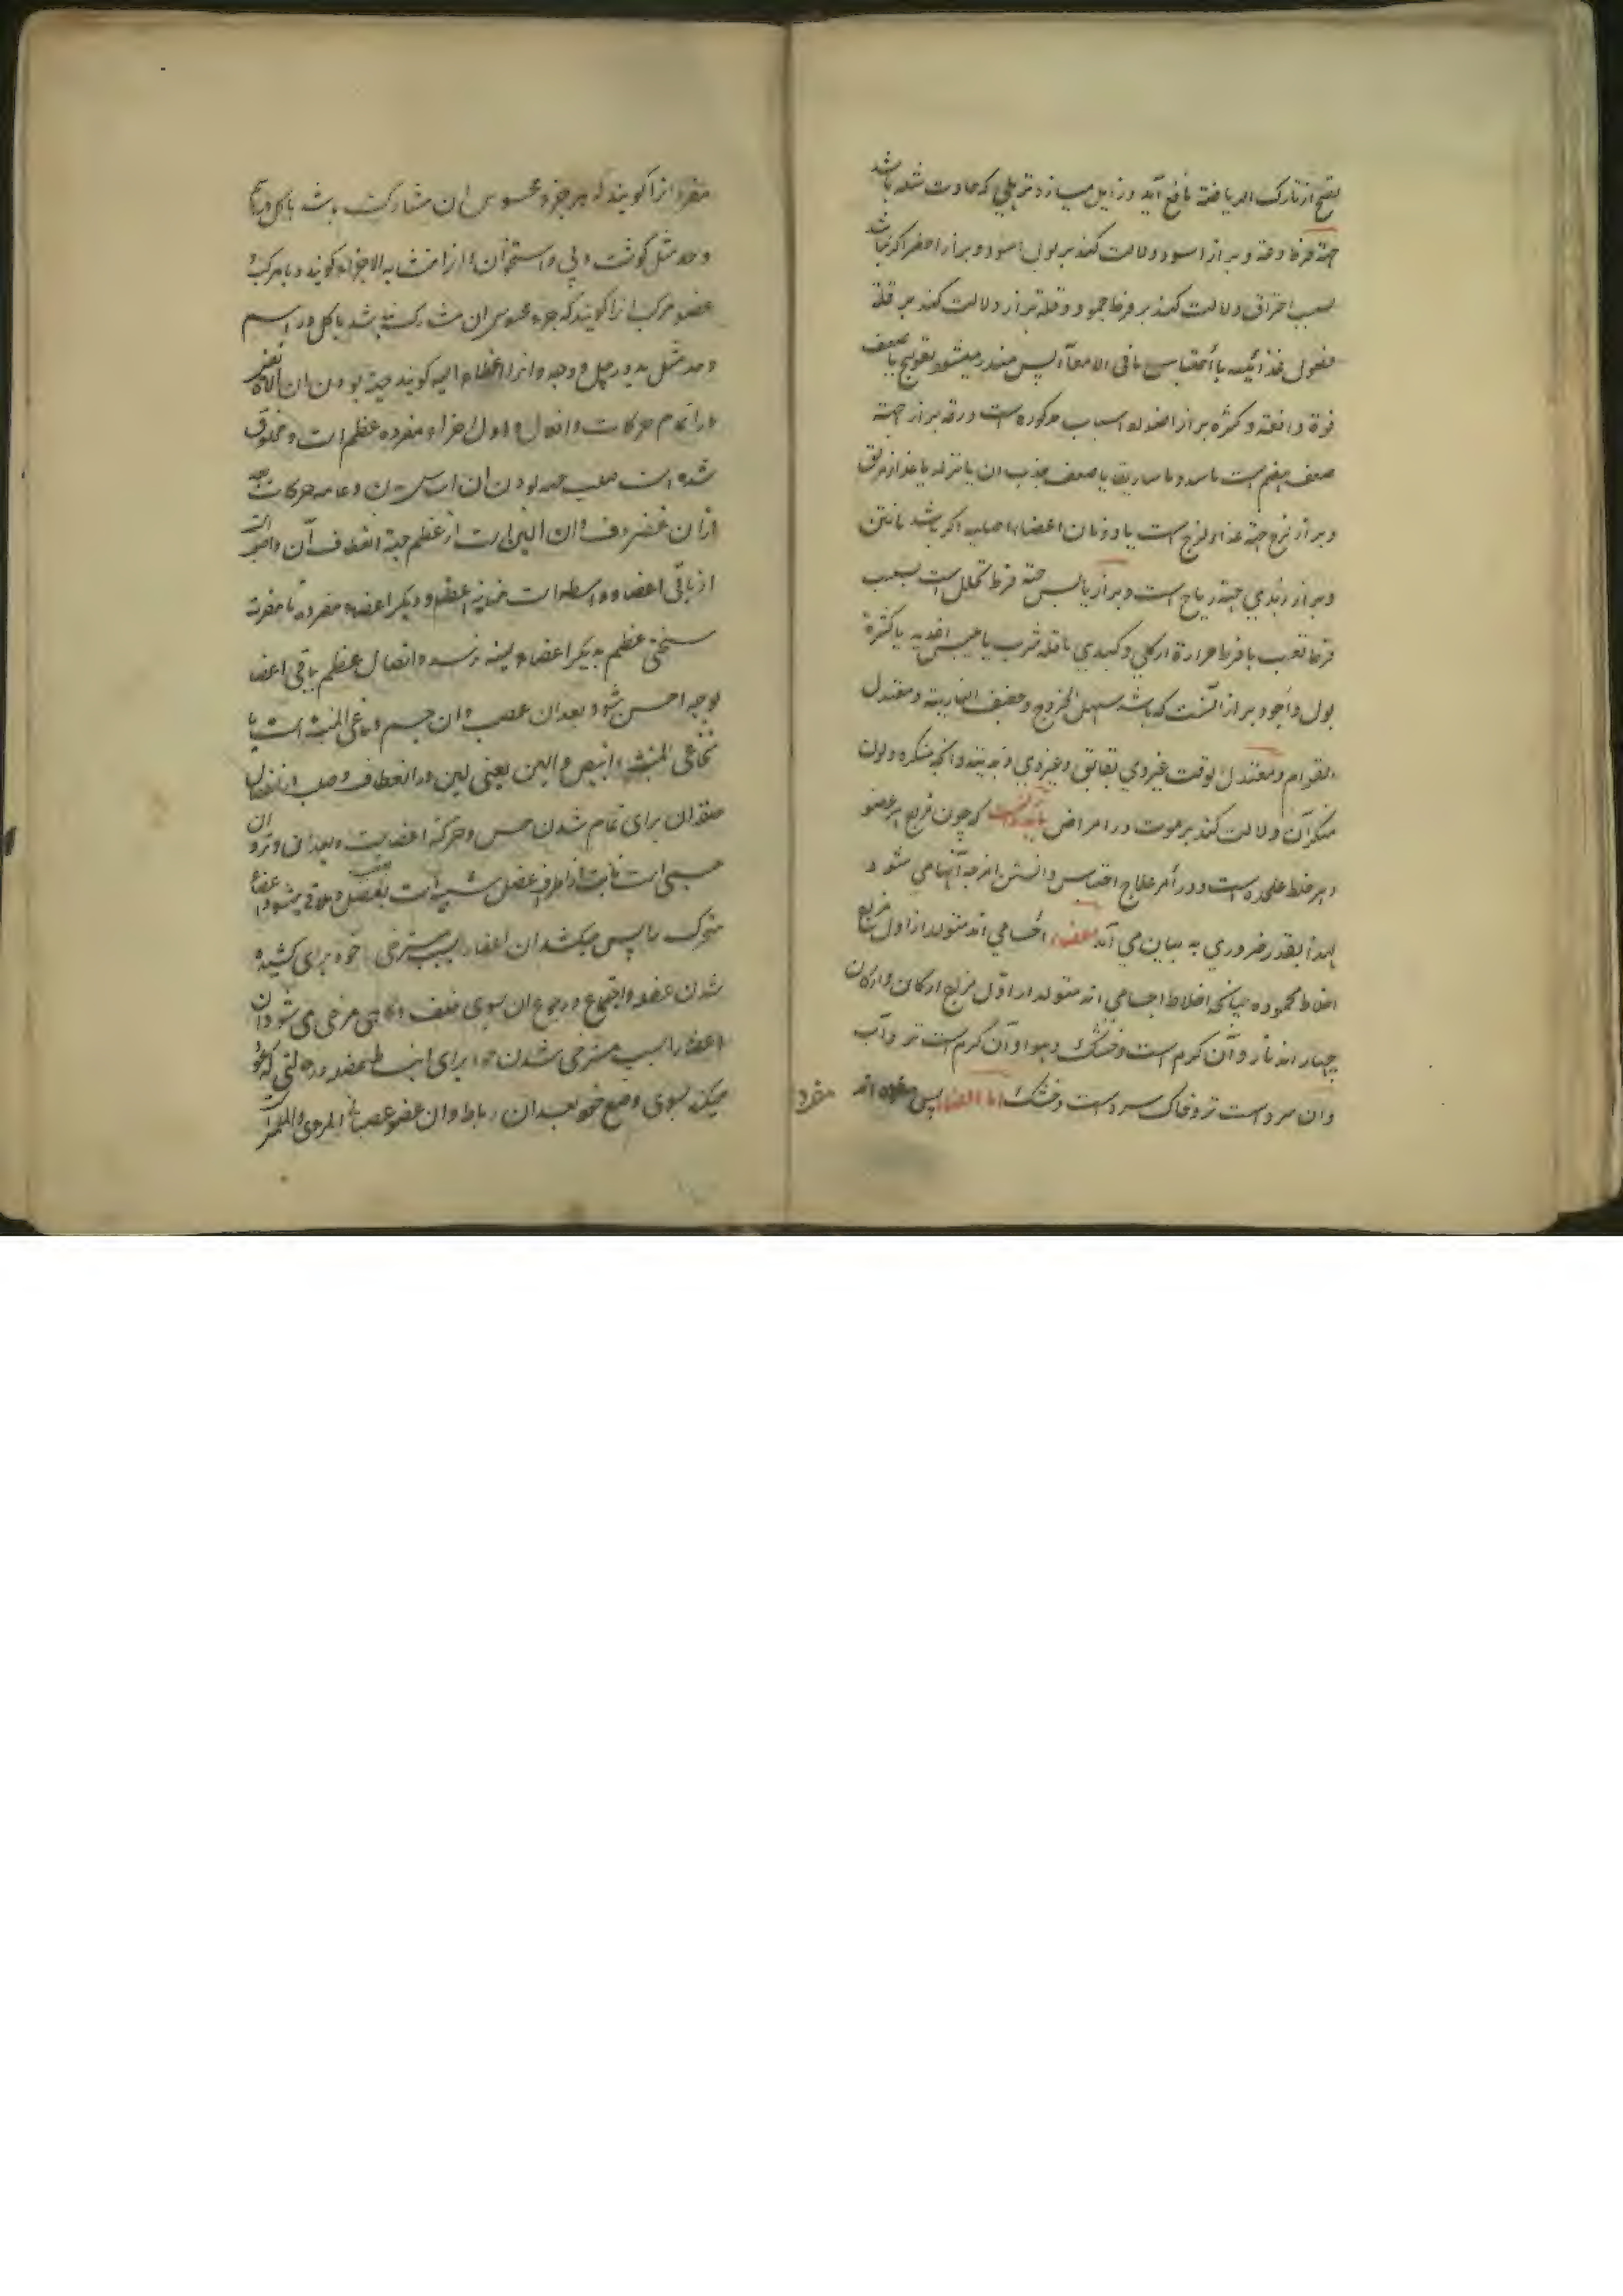 نضج از تارک الریاضة نافع آید و زایل میسازد ترهلی که حادث شده باشد
جهة فرط وقته و براز اسود دلالت کند بر بول اسود و براز اخضر اگر نباشد
بسبب احتراق دلالت کند بر فرط جمود و قلة براز دلالت کند بر قلة
فضول غذائیه یا احتباس ما فی الامعا پس منذر میشود بقولنج یا ضعف
قوة دافعة و کثرة براز اضداد اسباب مذکوره است و رقة براز جهة
ضعف هضم است یا سدد ماساریقا یا ضعف جذب آن یا نزله یا غذاء مزلق
و براز لزج جهة غذاء لزج است یا ذوبان اعضاء اصلیه اگر باشد با نتن
و براز زبدی جهة ریاح است و براز یابس جهة فرط تحلل است بسبب
فرط تعب یا فرط حرارة ار کلی و کبدی یا قلة شرب یا یبس اغذیه یا کثرة
بول و اجود براز آنست که باشد سهل الخروج و خفیف الناریة و معتدل
القوام و معتدل بوقت غیر ذی بقابق و غیر ذی زبدیة و آنچه منکره و لون
منکر آن دلالت کند بر موت در امراض باید دانست که چون مزاج هر عضو
و هر خلط علیحده است و در امر علاج احتیاج دانستن امزجه آنها می شود
لهذا بقدر ضروری به بیان می آید اعضاء اجسامی اند متولد از اول مزاج
اخلاط محموده چنانکه اخلاط اجسامی اند متولد از اول مزاج ارکان و ارکان
چهار اند نار و آن گرم است و خشک و هوا و آن گرم است تر و آب
و آن سرد است تر و خاک سرد است و خشک اما اعضا پس مفرده اند
مفرد
مفرد آنرا گویند که هر جزء محسوس آن مشارک باشد با کل در اسم
و حد مثل گوشت و پی و استخوان و آنرا متشابه الاجزاء گویند و یا مرکب و
عضو مرکب آنرا گویند که جزء محسوس آن مشارک نباشد با کل در اسم
و حد مثل ید و رجل و وجه و آنرا اعضاء الیه گویند جهة بودن آن آلات نفس
در اتمام حرکات و افعال و اول اجزاء مفرده عظم است و مخلوق
شده است صلب جهة بودن آن اساس بدن و دعامه حرکات بعد
از آن غضروف و آن الین است از عظم جهة انعطاف آن و اصلب
از باقی اعضا و واسطه است میانه عظم و دیگر اعضاء مفرده تا مضرة
سختی عظم به دیگر اعضاء لینه نرسد و اتصال عظم با باقی اعضا
بوجه احسن شود بعد آن عصب و آن جسم دماغی المنبت است یا
نخاعی المنبت و ابیض و لین یعنی لین در انعطاف و صلب در انفصال
منفعة آن برای تمام شدن حس و حرکة اعضا است و بعد آن وتر و آن
جسمی است نابت از اطراف عضل شبیه است بعصب و ملاقی میشود اعضاء
متحرک را پس میکشد آن اعضا را بسبب متشنج خود برای کشیده
شدن عضو و اجتماع و رجوع آن بسوی خلف و گاهی مرخی می شود آن
اعضا را بسبب مسترخی شدن خود برای انبساط عضو در حالتی که عود
میکند بسوی وضع خود بعد آن رباط و آن عضو عصبانی المرئی والملمس